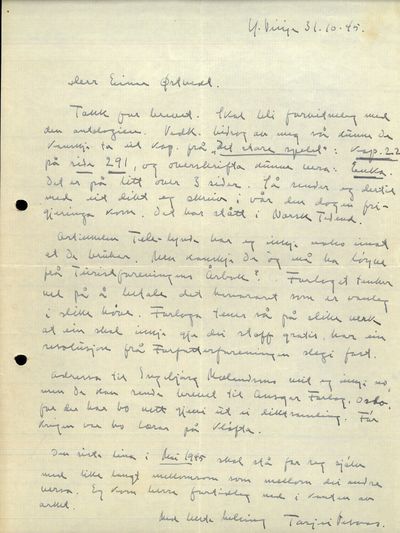 Y. Vinje 31-10-45.
Herr Einar Østvedt.
Takk for brevet. Skal bli forvitneleg med
den antologien. Vedk. bidrag av meg så kunne du
kanskje ta eit kap. frå "Det store spelet": kap. 22
på side 291, og overskrifta kunne vera:
Det er på litt over 3 sider. Så sender eg dertil
med eit dikt eg skreiv i vår den dagen fri-
gjeringa kom. Det har stått i Norsk Tidend.
Artikkelen Tele-kynde har eg ikkje noko imot
at du bruker. Men kanskje du og må ha løyve
frå Turistforeningens årbok? Forlaget tenker
vel på å betale det honoraret som er vanleg
i slike høve. Forlaga tener så på slike verk
at ein skal ikkje gje dei stoff gratis, har ein
resolusjon frå Forfatterforeningen slege fast.
Adressa til Ingebjørg Mælandsmo veit eg ikkje no,
men du kan sende brevet til Ansgar Forlag, Oslo,
for der har ho nett gjeve ut ei diktsamling. Før
krigen var ho lærar på Kløfta.
Den siste lina i Mai 1945 skal stå for seg sjølv
med like langt mellomrom som mellom dei andre
versa. Eg kom
arket.
Med beste helsing Tarjei Vesaas.